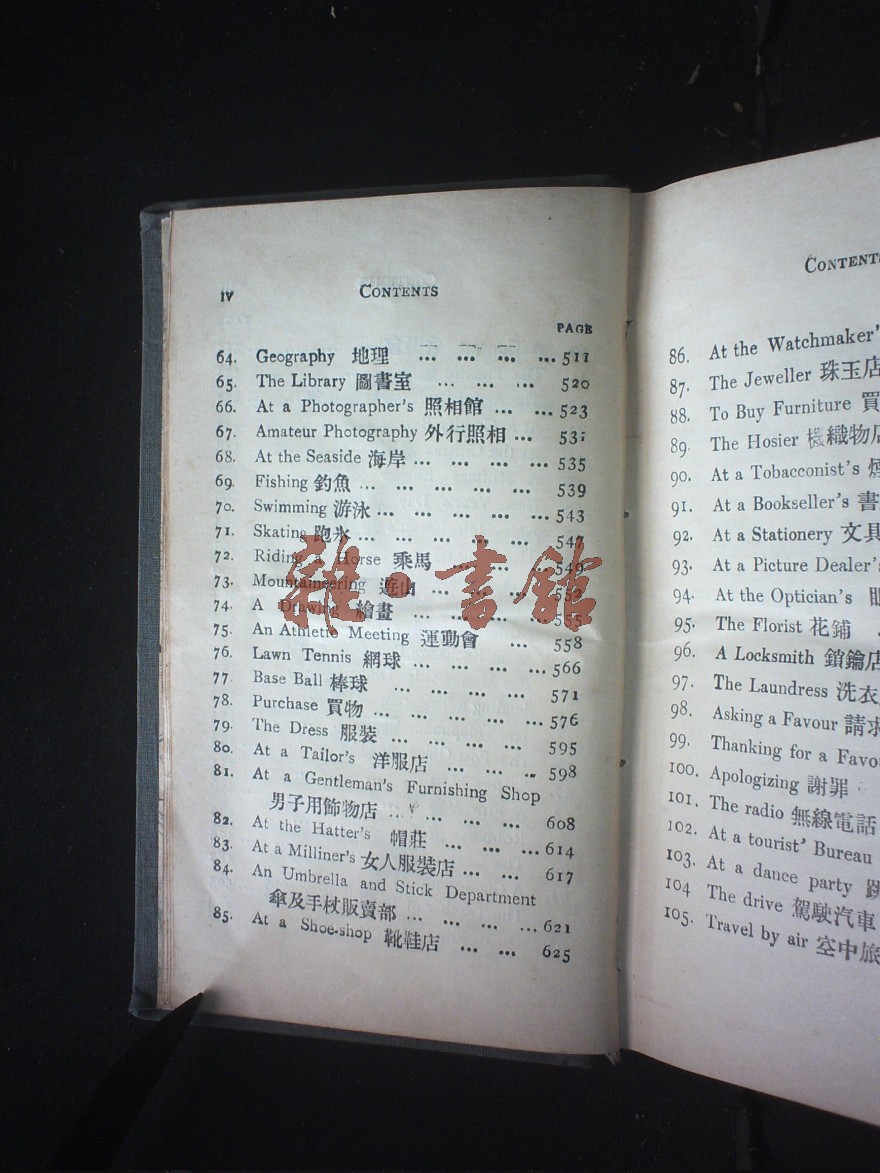 IV CONTENTS
PAGE
64. Geography 地理 ... ... ... ... 511
65. The Library 圖書室 ... ... ... 520
66. At a Photographer's 照相館 ... ... 523
67. Amateur Photography 外行照相 ... 531
68. At the Seaside 海岸 ... ... ... ... 535
69. Fishing 釣魚 ... ... ... ... ... 539
70. Swimming 游泳 ... ... ... ... ... 543
71. Skating 跑氷 ... ... ... ... ... 547
72. Riding a Horse 乘馬 ... ... 549
73. Mountaineering 遊山 ... ... ... 553
74. A Drawing 繪畫 ... ... ... ... 555
75. An Athletic Meeting 運動會 ... 558
76. Lawn Tennis 網球 ... ... ... ... 566
77. Base Ball 棒球 ... ... ... ... 571
78. Purchase 買物 ... ... ... ... ... 576
79. The Dress 服裝 ... ... ... ... 595
80. At a Tailor's 洋服店 ... ... ... 598
81. At a Gentleman's Furnishing Shop
男子用飾物店 ... ... ... ... 608
82. At the Hatter's 帽莊 ... ... ... 614
83. At a Milliner's 女人服裝店 ... ... 617
84. An Umbrella and Stick Department
傘及手杖販賣部 ... ... ... ... 621
85. At a Shoe-shop 靴鞋店 ... ... 625
雜書館
CONTENTS
86. At the Watchmaker'
87. The Jeweller 珠玉店
88. To Buy Furniture 買
89. The Hosier 機織物店
90. At a Tobacconist's 煙
91. At a Bookseller's 書
92. At a Stationery 文具
93. At a Picture Dealer's
94. At the Optician's 眼
95. The Florist 花鋪
96. A Locksmith 鎖鑰店
97. The Laundress 洗衣
98. Asking a Favour 請求
99. Thanking for a Favou
100. Apologizing 謝罪
101. The radio 無線電話
102. At a tourist' Bureau
103. At a dance party 跳
104 The drive 駕駛汽車
105. Travel by air 空中旅